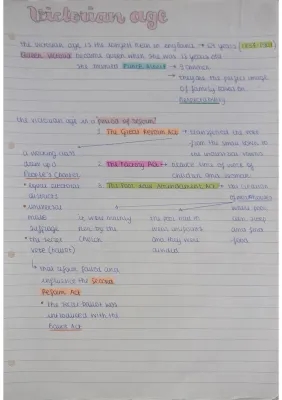 Victorian age
the victorian age is the longest reign of england → 64 years (1837-1901)
Queen Victoria became queen when she was 18 years old
she married Prince Albert → 9 children
→ they are the perfect image
of family based on
respectability
the victorian age is a "period of reform"
1. The Great Reform Act → transferred the vote
from the small towns to
the industrial towns
a working class
drew up a
2. The Factory Act → reduce time of work of
children and women
People's Charter
• equal electoral
districts
3. The Poor Law Amendment Act → the creation
of workhouses
• universal
male
suffrage
• the secret
vote (ballot)
it was mainly
run by the
church
the poor had to
wear uniforms
and they were
divided
↳ this reform failed and
influence the Second
Reform Act
• the secret ballot was
introduced with the
Ballot Act